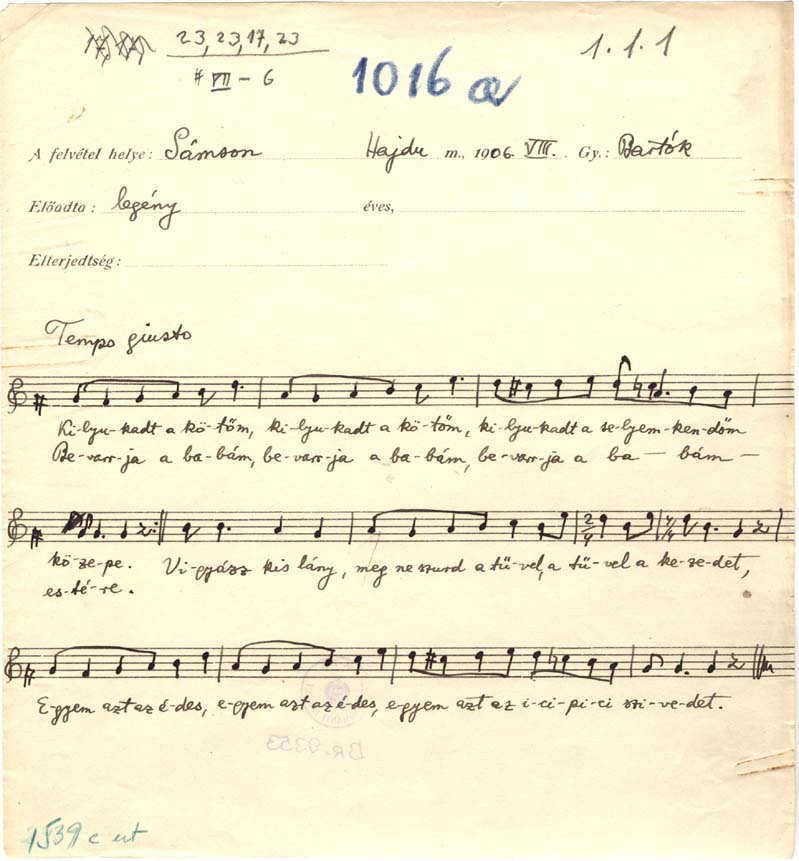 23, 23, 17, 23
1. 1. 1
# VII - 6
1016 a
A felvétel helye: Sámson Hajdu m., 1906. VIII. Gy.: Bartók
Előadta: legény éves,
Elterjedtség:
Tempo giusto
Ki-lyu-kadt a kö-tőm, ki-lyu-kadt a kö-tőm, ki-lyu-kadt a se-lyem-ken-dőm
Be-varr-ja a ba-bám, be-varr-ja a ba-bám, be-varr-ja a ba - bám -
2/4 4/4
kö-ze-pe. Vi-gyázz kis lány, meg ne szurd a tü-vel, a tü-vel a ke-ze-det,
es-té-re.
E-gyem azt az é-des, e-gyem azt az é-des, e-gyem azt az i-ci-pi-ci szi-ve-det.
BR. 9353
1539 c